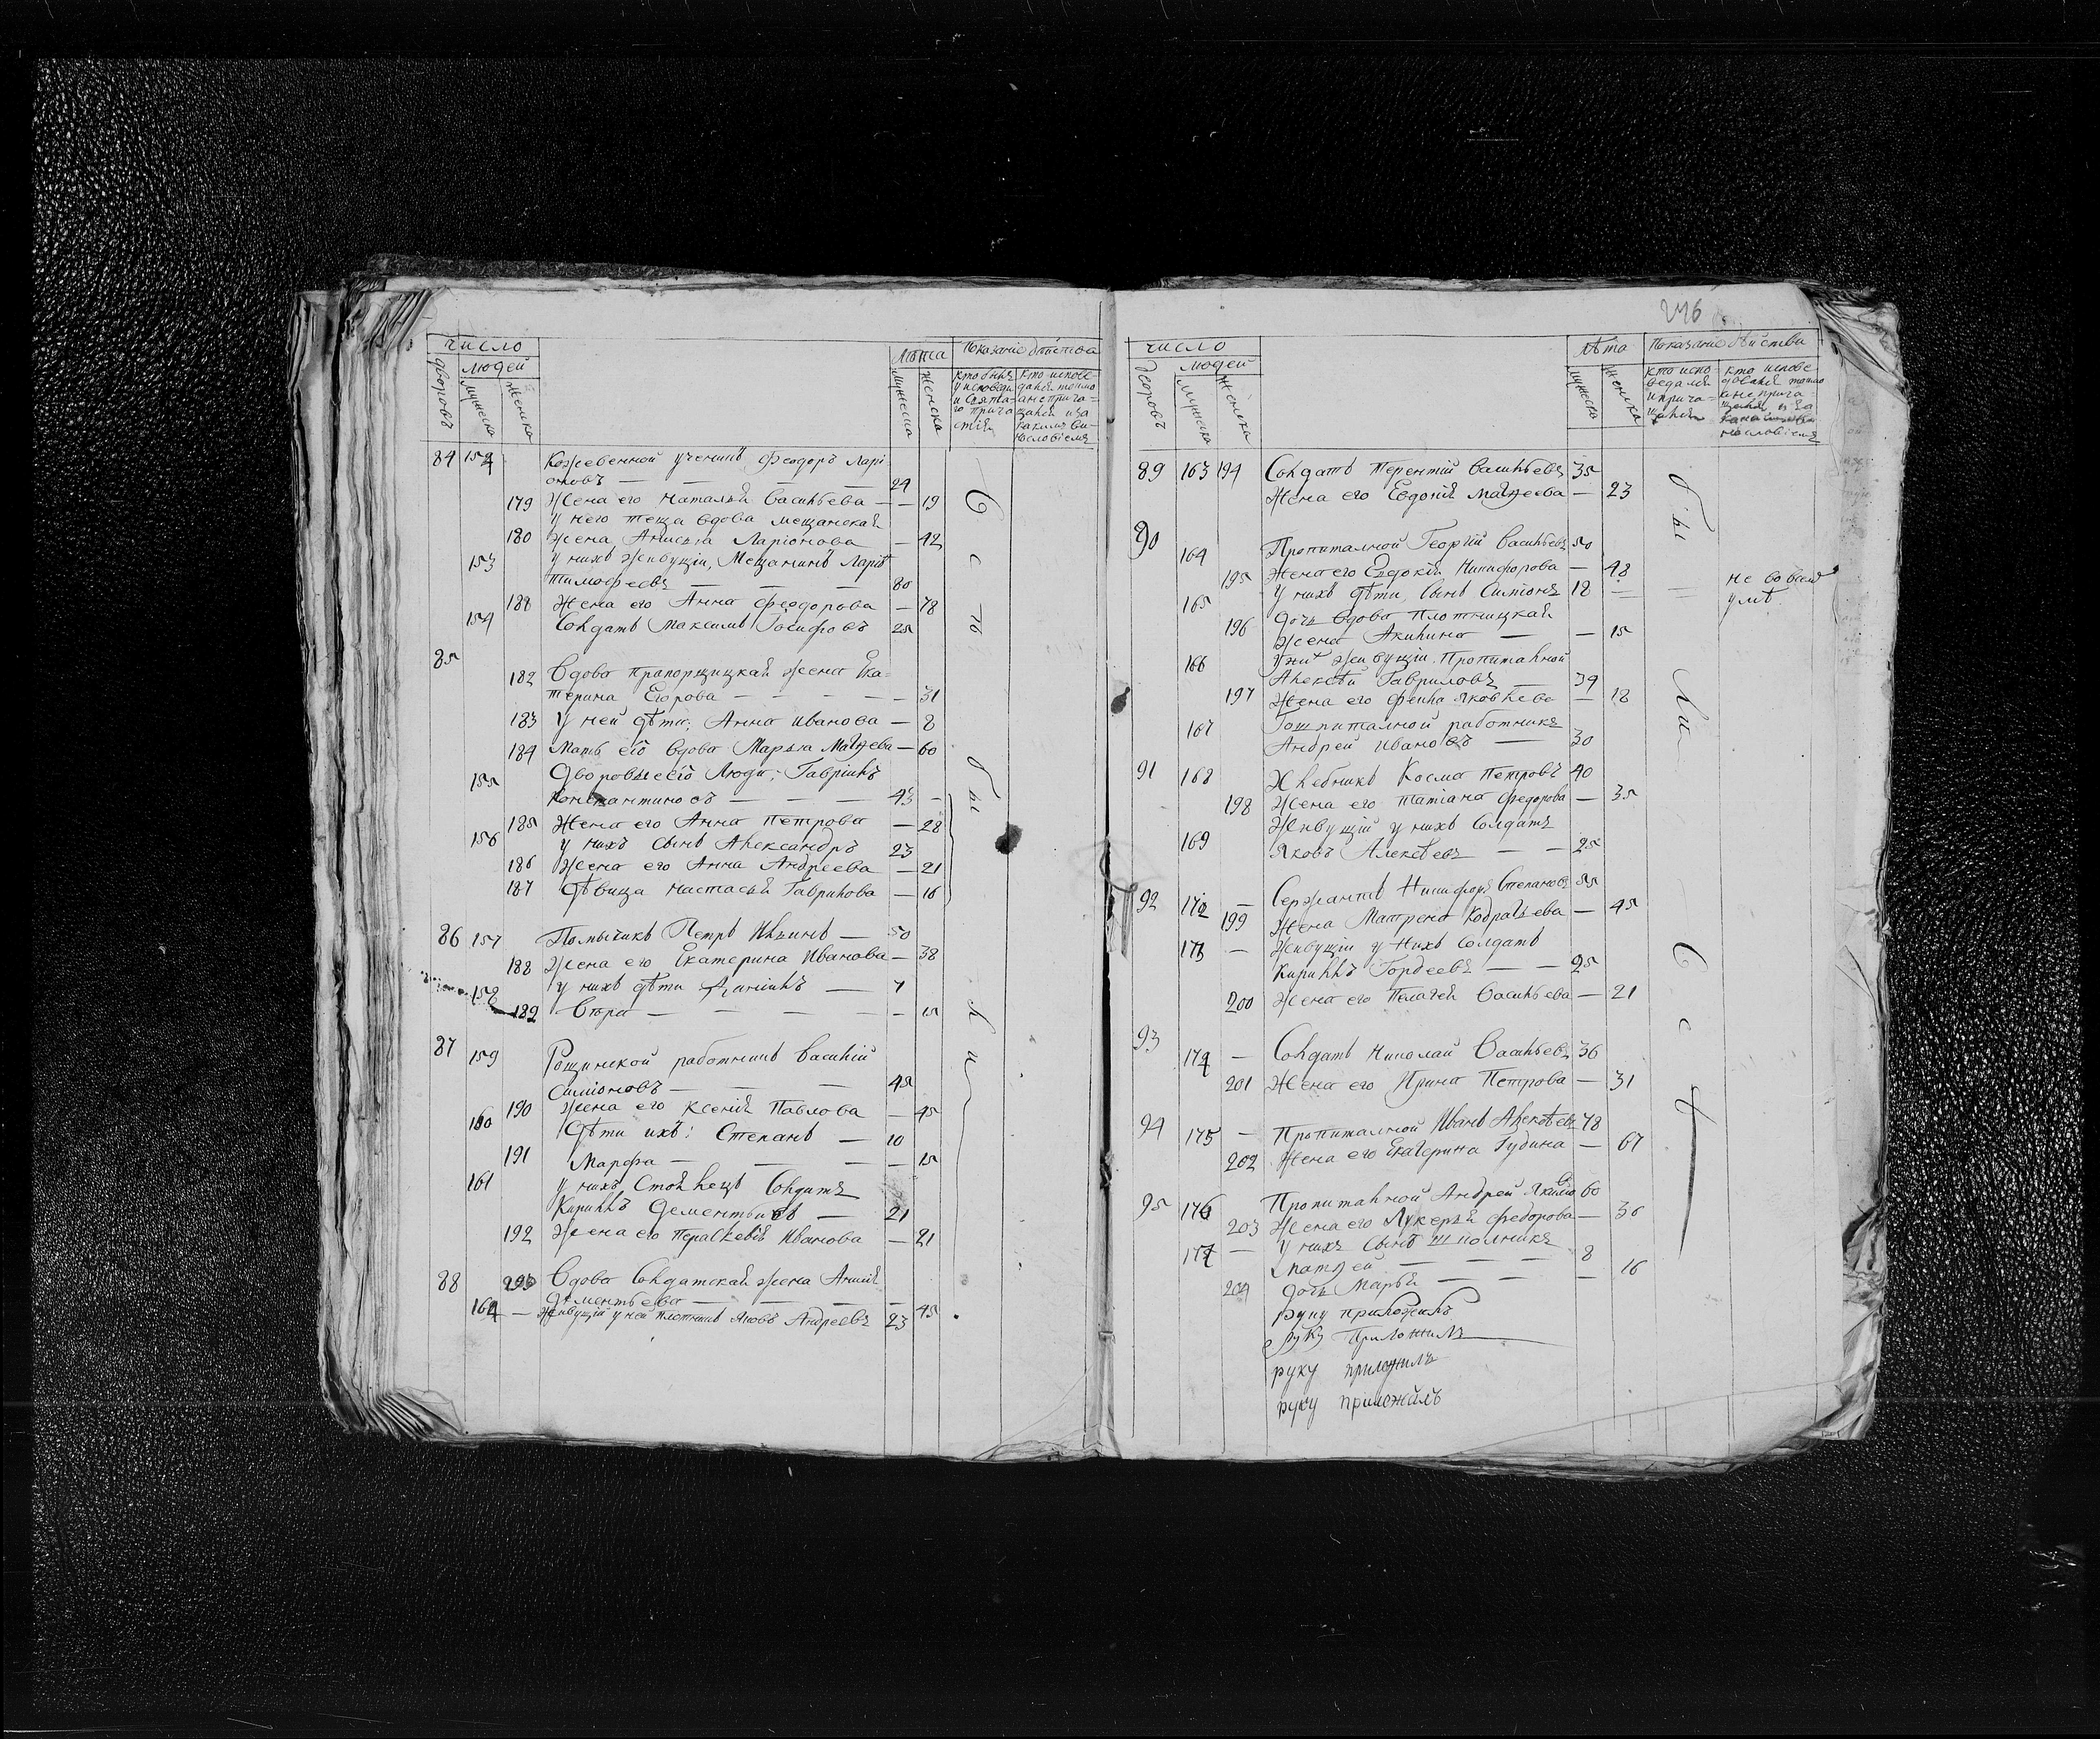 число
людей
дворовъ
мужеска
женска
лѣта
мужеска
женска
Показаніе бытства
кто былъ
у исповеди
и свята-
го прича
стія
кто испове-
дался токмо
а не прича-
щался и за
какимъ ви-
нословіемъ
84 152 Кожевенной ученикъ Феодоръ Ларі
оновъ — — — 24
179 Жена его Наталья Васильева — 19
у него теща вдова мещанская
180 жена Анисья Ларіонова — 42
153 у нихъ живущіи, Мещанинъ
Тимофеевъ — — — 80
188 Жена его Анна Феодорова — 78
154 Солдатъ Максимъ Іосифовъ 25
85
182 Вдова прапорщицкая жена Ека-
терина Егорова — — — 31
183 У ней дѣти: Анна Иванова — 8
184 Мать его вдова Марья — 60
155 Дворовые его люди: Гаврилъ
Константиновъ — — — 43 —
185 Жена его Анна Петрова — 28
156 у нихъ сынъ Александръ 23
186 Жена его Анна Андреева — 21
187 Дѣвица Настасья Гаврилова — 16
86 157 Петръ Ильинъ — 50
188 Жена его Екатерина Иванова — 38
158 у нихъ дѣти — 7
189 — — — —
87 159 работникъ Василій
Симіоновъ — — — 45
190 Жена его Ксенія Павлова — 45
160 Дѣти ихъ: Степанъ — 10
191 Марфа — — — 15
161 у нихъ Солдатъ
Кирилъ Дементьевъ — 21
192 Жена его Параскевія Иванова — 21
88 193 Вдова Солдатская жена
Дементьева — — —
162 — живущій у ней плотникъ Яковъ Андреевъ 23 45
были
246
число
людей
дворовъ
мужеска
женска
лѣта
мужеска
женска
Показаніе бытства
кто испо-
ведался
и прича-
щался
кто испове-
дался токмо
а не прича-
щался и за
нословіемъ
89 163 194 Солдатъ Терентій Васильевъ 35
Жена его Евдокія Матѳеева — 23
90
164 Пропиталной Георгій Васильевъ 50
195 Жена его Евдокія Никифорова — 48
165 У нихъ дѣти, сынъ Симіонъ 18 — = не вовсемъ
умѣ
196 дочь вдова плотницкая
жена Акилина — — 15
166 живущіи Пропиталной
Алексѣй Гавриловъ — 39
197 Жена его Фекла Яковлева — 18
167 Гошпиталной работникъ
Андрей Ивановъ — 30
91 168 Хлебникъ Косма Петровъ 40
198 Жена его Татіана Федорова — 35
Живущій у нихъ Солдатъ
169 Яковъ Алексѣевъ — — 25
92 172 — Сержантъ Никифоръ Степановъ 55
199 Жена Матрена Кодратьева — 45
173 — Живущіи у нихъ Солдатъ
Кирилъ Гордеевъ — — 25
200 Жена его Пелагея Васильева — 21
93
174 — Солдатъ Николай Васильевъ 36
201 Жена его Ирина Петрова — 31
94 175 — Пропиталной Иванъ Алексѣевъ 78
202 Жена его Екатерина Гудина — 67
95 176 Пропиталной Андрей 60
203 Жена его Лукерья Федорова — 36
177 — у нихъ сынъ школникъ
Матѳей — — — 8
204 дочь Марья — — — 16
руку приложилъ
руку Приложилъ
руку приложилъ
руку приложилъ